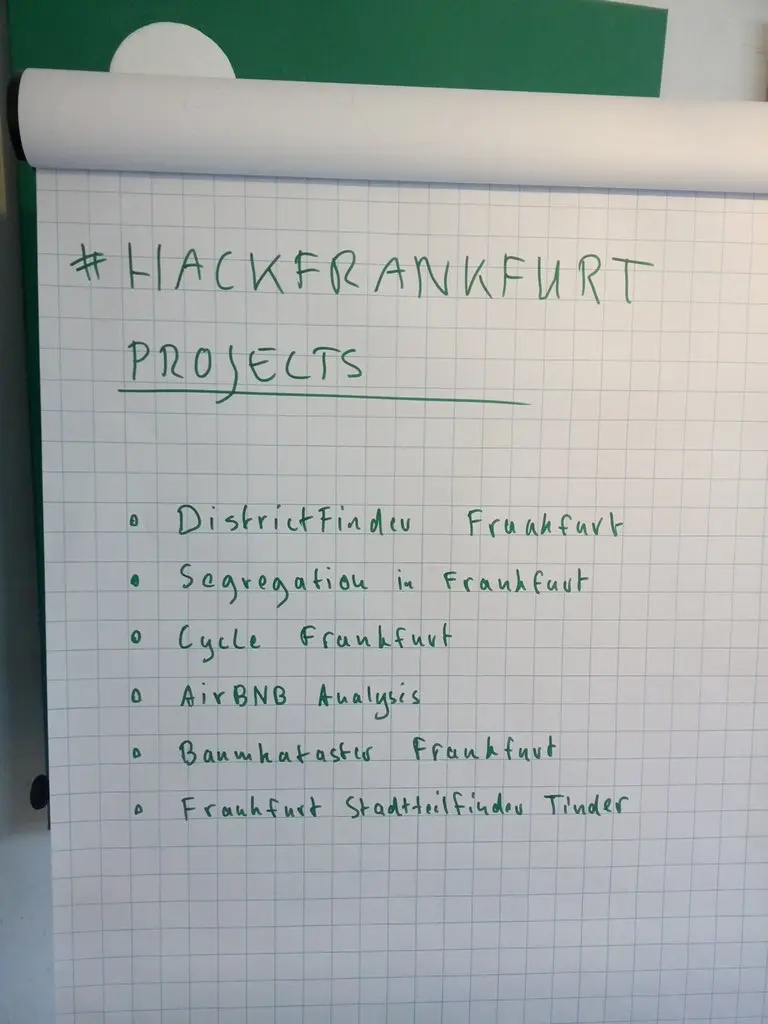 #HACKFRANKFURT
PROJECTS
DistrictFinder Frankfurt
Segregation in Frankfurt
Cycle Frankfurt
AirBNB Analysis
Baumkataster Frankfurt
Frankfurt Stadtteilfinder Tinder